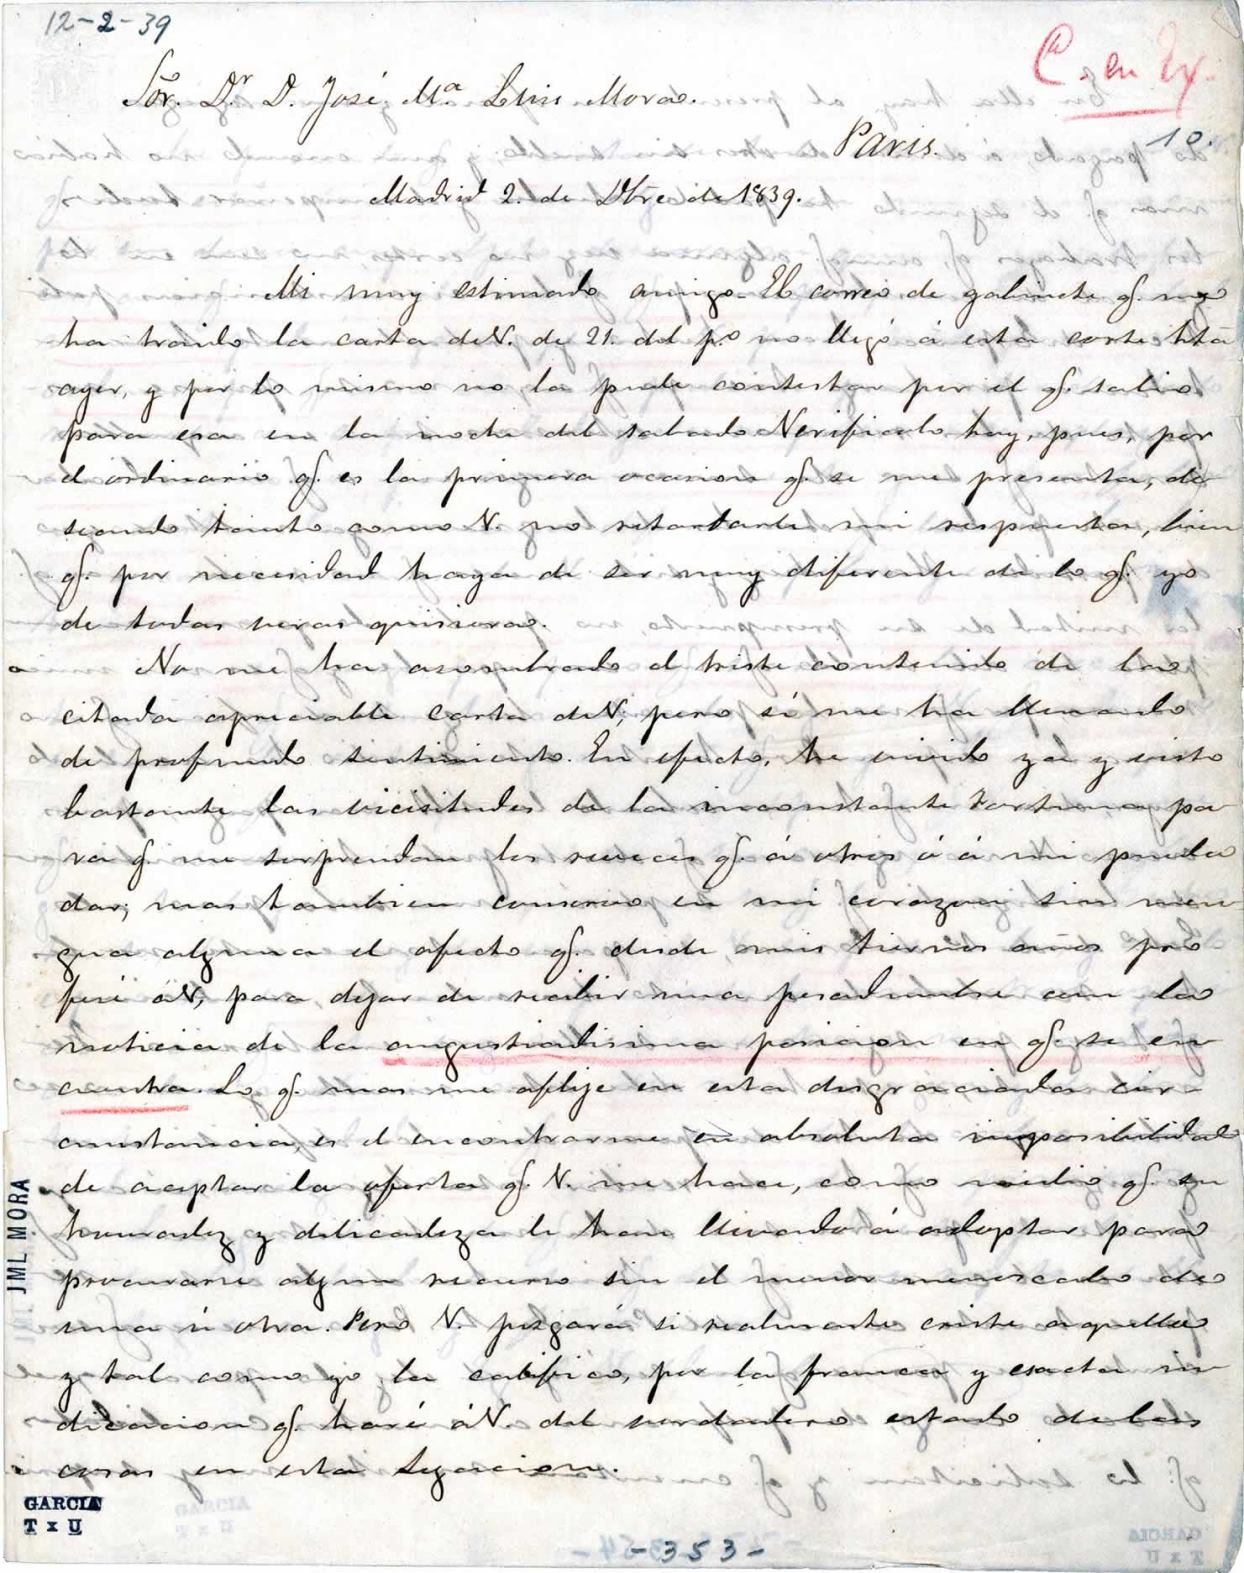 12-2-39
Sör. Dr. D. José Ma. Luis Mora.
C. en Ex.
Paris.
10.
Madrid 2. de Dbre de 1839.
Mi muy estimado amigo. El correo de gabinete q. me
ha traido la carta de V. de 21. del p.o no llegó á esta corte hta
ayer, y por lo mismo no la pude contestar por el q. salio
para esa en la noche del sabado. Verificolo hoy, pues, por
el ordinario q. es la primera ocasion q. se me presenta, de
seando tanto como V. no retardarle mi respuesta, bien
q. por necesidad haya de ser muy diferente de lo q. yo
de todas veras quisiera.
No me ha asombrado el triste contenido de la
citada apreciable carta de V; pero sí me ha llenado
de profundo sentimiento. En efecto, he vivido ya y visto
bastante las vicisitudes de la inconstante fortuna pa
ra q. me sorprendan los reveces q. á otros ó á mi pueda
dar; mas tambien conservo en mi corazon sin men
gua alguna el afecto q. desde mis tiernos años pro
fesé á V, para dejar de recibir una pesadumbre con la
noticia de la angustiadisima posicion en q. se en
cuentra. Lo q. mas me aflije en esta desgraciada cir-
cunstancia, es el encontrarme en absoluta imposibilidad
de aceptar la oferta q. V. me hace, como medio q. su
honradez y delicadeza le han llevado á adoptar para
procurarse algun recurso sin el menor menoscabo de
una ú otra. Pero V. juzgará si realmente existe aquella
y tal como yo la califico, por la franca y esacta in
dicacion q. haré á V. del verdadero estado de las
cosas en esta Legacion.
JML MORA
GARCIA
T x U
-353-